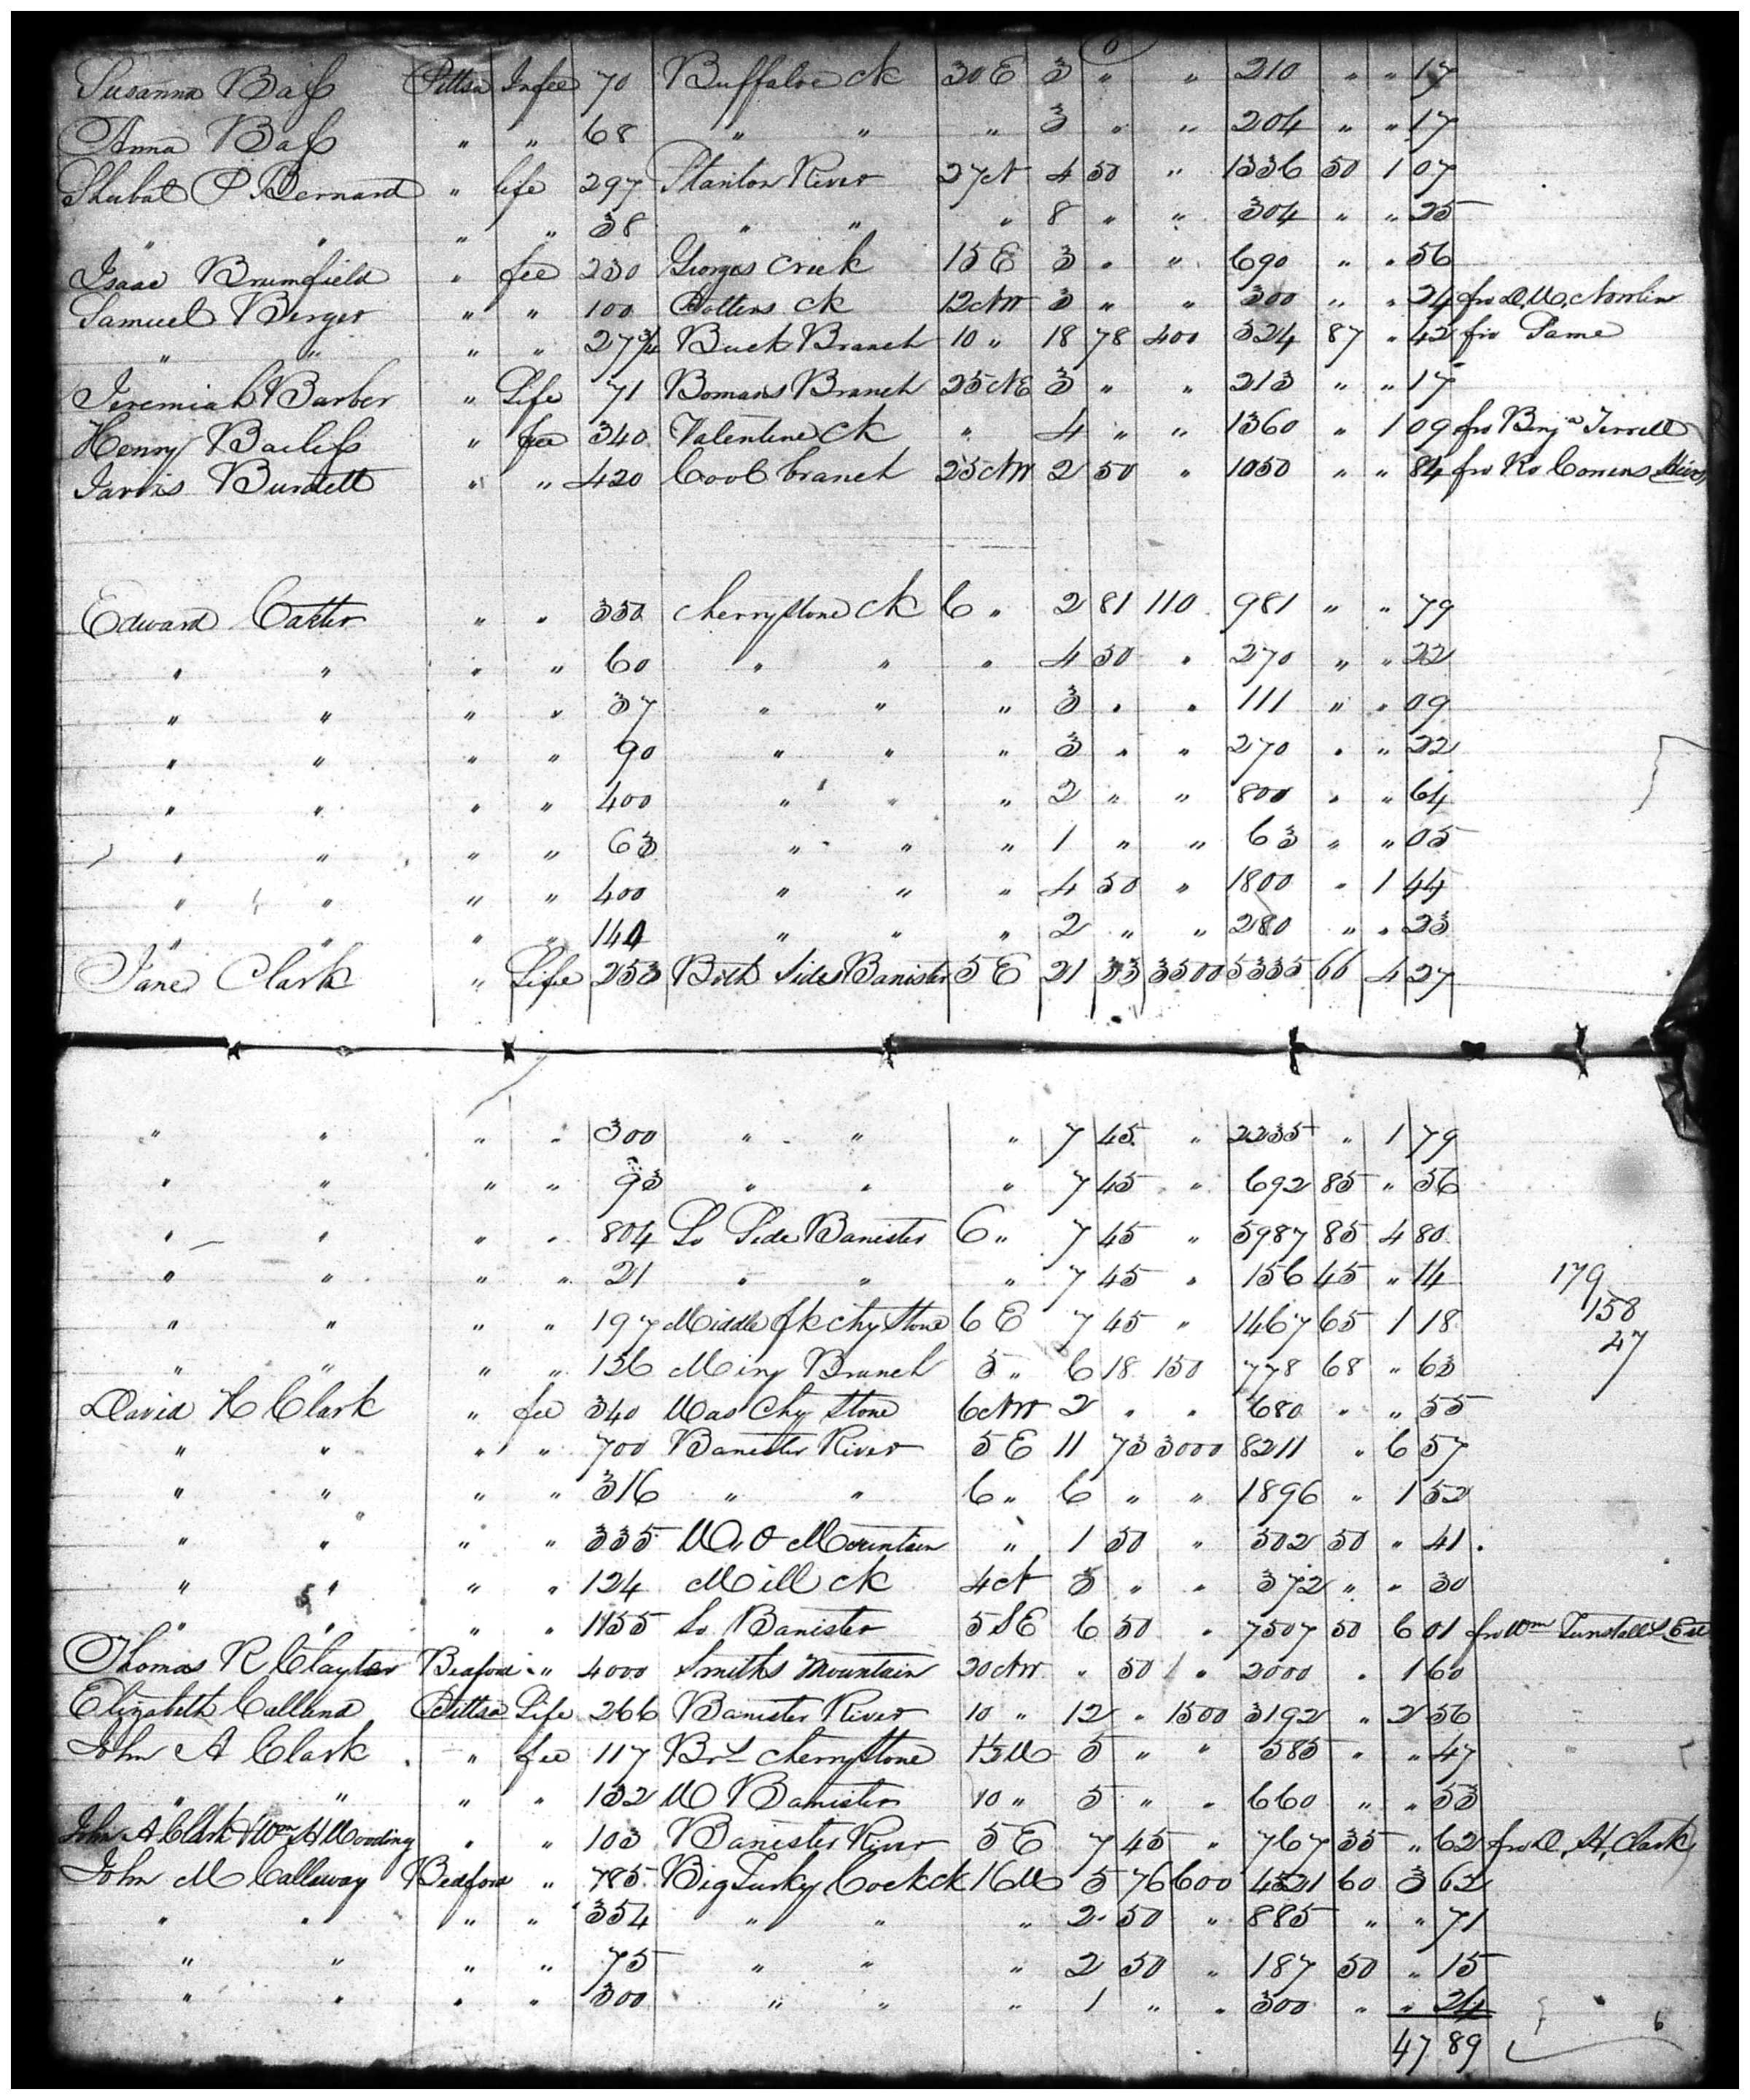 6
Susanna Bass Pittsa Infee 70 Buffaloe ck 30 E 3 " " 210 " " 17
Anna Bass " " 68 " " " 3 " " 204 " " 17
Shubal P Bernard " life 297 Stanton River 27 N 4 50 " 1336 50 1 07
" " " " 38 " " " 8 " " 304 " " 25
Isaac Brumfield " fee 230 Georges Creek 15 E 3 " " 690 " " 56
Samuel Berger " " 100 Potters ck 12 NW 3 " " 300 " " 24 fro D, W, Nowlin
" " " " 27 3/4 Buck Branch 10 " 18 78 400 524 87 " 42 fro Same
Jeremiah Barber " Life 71 Bomans Branch 25 NE 3 " " 213 " " 17
Henry Bailess " fee 340 Valentine Ck " 4 " " 1360 " 1 09 fro Benja Terrell
Jarvis Burdett " " 420 Cool branch 25 NW 2 50 " 1050 " " 84 fro Ro Comens Heirs
Edward Carter " " 350 Cherrystone Ck 6 " 2 81 110 981 " " 79
" " " " 60 " " " 4 50 " 270 " " 22
" " " " 37 " " " 3 " " 111 " " 09
" " " " 90 " " " 3 " " 270 " " 22
" " " " 400 " " " 2 " " 800 " " 64
" " " " 63 " " " 1 " " 63 " " 05
" " " " 400 " " " 4 50 " 1800 " 1 44
" " " " 140 " " " 2 " " 280 " " 23
Jane Clark " Life 253 Both Sides Banister 5 E 21 33 3500 5335 66 4 27
" " " " 300 " " " 7 45 " 2235 " 1 79
" " " " 93 " " " 7 45 " 692 85 " 56
" " " " 804 So Side Banister 6 " 7 45 " 5987 85 4 80
" " " " 21 " " " 7 45 " 156 45 " 14
179
" " " " 197 Middle fk chy Stone 6 E 7 45 " 1467 65 1 18
158
47
" " " " 136 Miry Branch 5 " 6 18 150 778 68 " 63
David H Clark " fee 340 Was Chy Stone 6 NW 2 " " 680 " " 55
" " " " 700 Banister River 5 E 11 73 3000 8211 " 6 57
" " " " 316 " " 6 " 6 " " 1896 " 1 52
" " " " 335 W, O Mountain " 1 50 " 502 50 " 41
" " " " 124 Mill ck 4 N 3 " " 372 " " 30
" " " " 1155 So Banister 5 SE 6 50 " 7507 50 6 01 fro Wm Tunstalls Est
Thomas R Claytor Bedford " 4000 Smiths Mountain 20 NW " 50 " 2000 " 1 60
Elizabeth Calland Pittsa Life 266 Banister River 10 " 12 " 1500 3192 " 2 56
John A Clark " fee 117 Brs Cherrystone 15 W 5 " " 585 " " 47
" " " " 132 W Banister 10 " 5 " " 660 " " 53
John A Clark & Wm H Wooding " " 103 Banister River 5 E 7 45 " 767 35 " 62 fro D, H, Clark
John M Callaway Bedford " 785 Big Turky Cock ck 16 W 5 76 600 4521 60 3 62
" " " " 354 " " " 2 50 " 885 " " 71
" " " " 75 " " " 2 50 " 187 50 " 15
" " " " 300 " " " 1 " " 300 " " 24
6
47 89